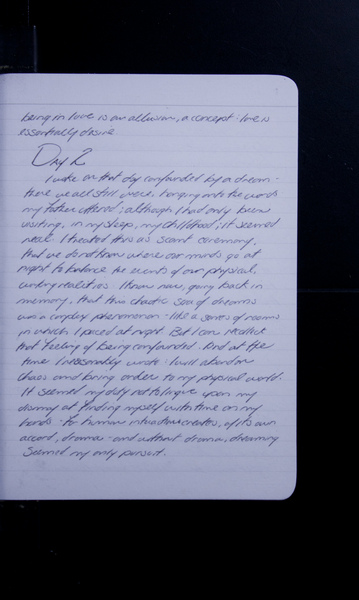 being in love is an allusion, a concept - love is
essentially desire
Day 2
I woke on that day confounded by a dream -
there we all still were. Hanging onto the words
my father offered; although I had only been
visiting, in my sleep, my childhood; it seemed
real. I treated this as scant ceremony,
that we do not know where our minds go at
night to balance the events of our physical,
waking realities. I know now, going back in
memory, that this chaotic sea of dreams
was a complex phenomenon - like a series of rooms
in which I paced at night. But I can recollect
that feeling of being confounded. And at the
time I necessarily wrote: I will abandon
chaos and bring order to my physical world.
It seemed my duty not to linger upon my
dismay at finding myself with time on my
hands - for human interaction creates, of its own
accord, dramas - and without drama, dreaming
seemed my only pursuit.